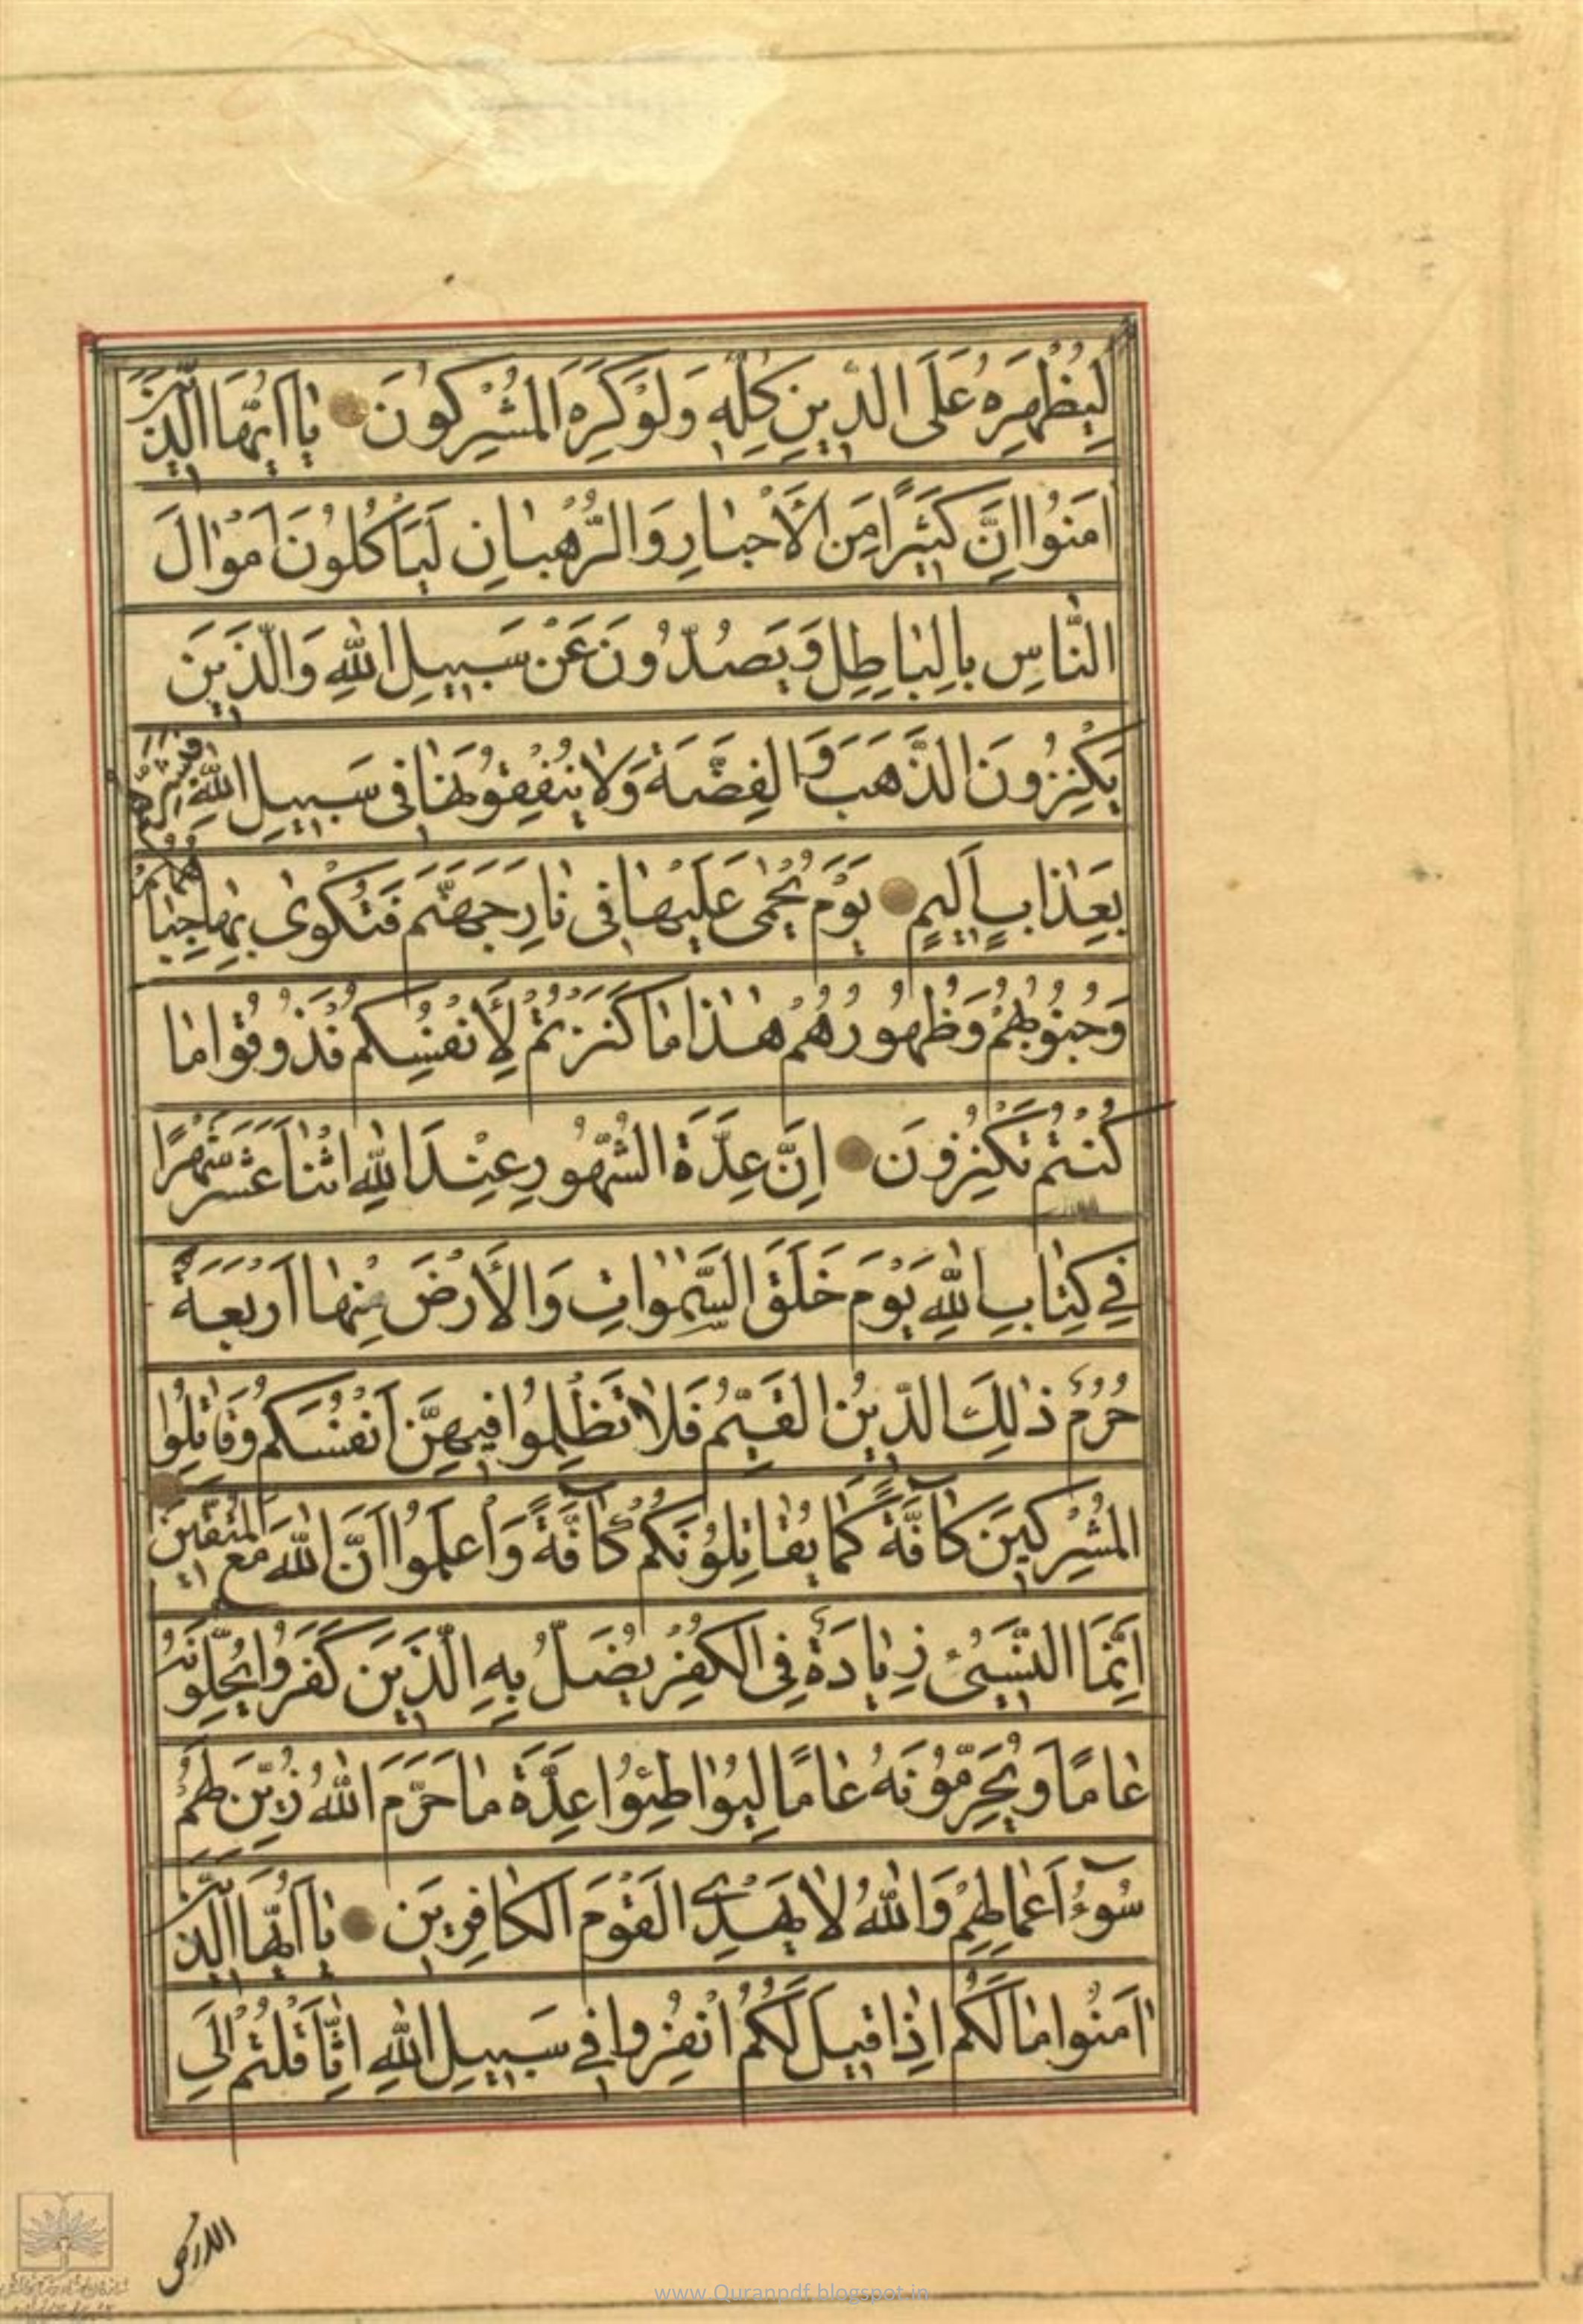 لِيُظْهِرَهُ عَلَى الدِّينِ كُلِّهِ وَلَوْ كَرِهَ الْمُشْرِكُونَ يٰا اَيُّهَا الَّذِينَ
اٰمَنُوا اِنَّ كَثِيرًا مِنَ الْأَحْبٰارِ وَالرُّهْبٰانِ لَيَأْكُلُونَ اَمْوٰالَ
النّٰاسِ بِالْبٰاطِلِ وَيَصُدُّونَ عَنْ سَبِيلِ اللّٰهِ وَالَّذِينَ
يَكْنِزُونَ الذَّهَبَ وَالْفِضَّةَ وَلٰا يُنْفِقُونَهٰا فِى سَبِيلِ اللّٰهِ فَبَشِّرْهُمْ
بِعَذٰابٍ اَلِيمٍ يَوْمَ يُحْمٰى عَلَيْهٰا فِى نٰارِ جَهَنَّمَ فَتُكْوٰى بِهٰا جِبٰاهُهُمْ
وَجُنُوبُهُمْ وَظُهُورُهُمْ هٰذٰا مٰا كَنَزْتُمْ لِأَنْفُسِكُمْ فَذُوقُوا مٰا
كُنْتُمْ تَكْنِزُونَ اِنَّ عِدَّةَ الشُّهُورِ عِنْدَ اللّٰهِ اثْنٰا عَشَرَ شَهْرًا
فِي كِتٰابِ اللّٰهِ يَوْمَ خَلَقَ السَّمٰوٰاتِ وَالْأَرْضَ مِنْهٰا اَرْبَعَةٌ
حُرُمٌ ذٰلِكَ الدِّينُ الْقَيِّمُ فَلٰا تَظْلِمُوا فِيهِنَّ اَنْفُسَكُمْ وَقٰاتِلُوا
الْمُشْرِكِينَ كٰافَّةً كَمٰا يُقٰاتِلُونَكُمْ كٰافَّةً وَاعْلَمُوا اَنَّ اللّٰهَ مَعَ الْمُتَّقِينَ
اِنَّمَا النَّسِيءُ زِيٰادَةٌ فِى الْكُفْرِ يُضَلُّ بِهِ الَّذِينَ كَفَرُوا يُحِلُّونَهُ
عٰامًا وَيُحَرِّمُونَهُ عٰامًا لِيُوٰاطِئُوا عِدَّةَ مٰا حَرَّمَ اللّٰهُ زُيِّنَ لَهُمْ
سُوٓءُ اَعْمٰالِهِمْ وَاللّٰهُ لٰا يَهْدِي الْقَوْمَ الْكٰافِرِينَ يٰا اَيُّهَا الَّذِينَ
اٰمَنُوا مٰا لَكُمْ اِذٰا قِيلَ لَكُمُ انْفِرُوا فِي سَبِيلِ اللّٰهِ اثّٰاقَلْتُمْ اِلَى
الارض
www.Quranpdf.blogspot.in